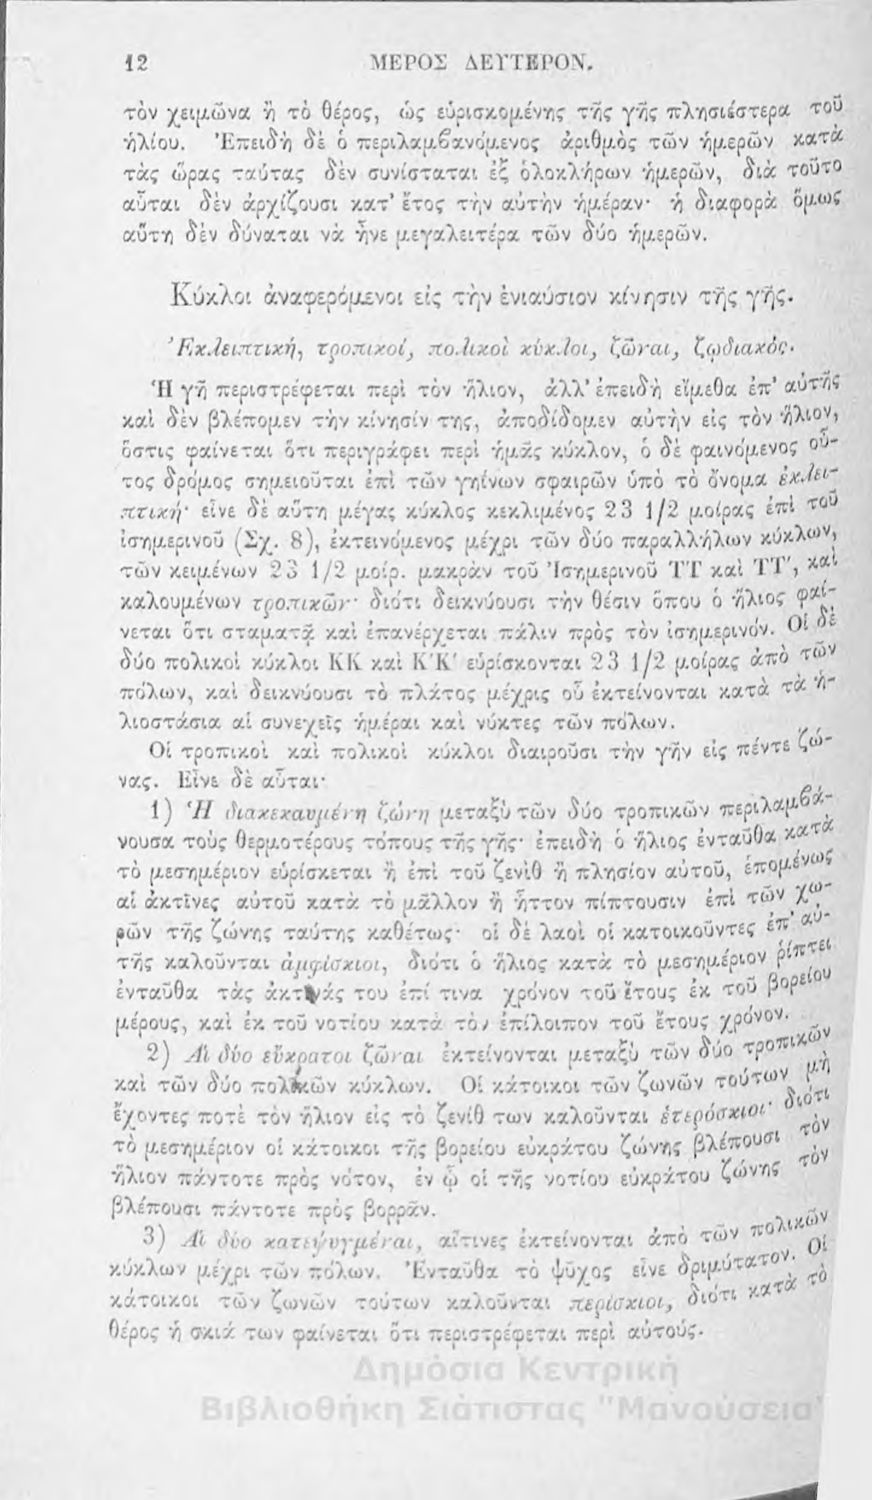 12 ΜΕΡΟΣ ΔΕΥΤΕΡΟΝ.
τὸν χειμῶνα ἢ τὸ θέρος, ὡς εὑρισκομένης τῆς γῆς πλησιέστερα τοῦ
ἡλίου. Ἐπειδὴ δὲ ὁ περιλαμβανόμενος ἀριθμὸς τῶν ἡμερῶν κατὰ
τὰς ὥρας ταύτας δὲν συνίσταται ἐξ ὁλοκλήρων ἡμερῶν, διὰ τοῦτο
αὗται δὲν ἀρχίζουσι κατ' ἔτος τὴν αὐτὴν ἡμέραν· ἡ διαφορὰ ὅμως
αὕτη δὲν δύναται νὰ ᾖνε μεγαλειτέρα τῶν δύο ἡμερῶν.
Κύκλοι ἀναφερόμενοι εἰς τὴν ἐνιαύσιον κίνησιν τῆς γῆς.
Ἐκλειπτική, τροπικοί, πολικοὶ κύκλοι, ζῶναι, ζῳδιακός.
Ἡ γῆ περιστρέφεται περὶ τὸν ἥλιον, ἀλλ' ἐπειδὴ εἴμεθα ἐπ' αὐτῆς
καὶ δὲν βλέπομεν τὴν κίνησίν της, ἀποδίδομεν αὐτὴν εἰς τὸν ἥλιον,
ὅστις φαίνεται ὅτι περιγράφει περὶ ἡμᾶς κύκλον, ὁ δὲ φαινόμενος οὗ-
τος δρόμος σημειοῦται ἐπὶ τῶν γηίνων σφαιρῶν ὑπὸ τὸ ὄνομα ἐκλει-
πτική· εἶνε δὲ αὕτη μέγας κύκλος κεκλιμένος 23 1/2 μοίρας ἐπὶ τοῦ
ἰσημερινοῦ (Σχ. 8), ἐκτεινόμενος μέχρι τῶν δύο παραλλήλων κύκλων,
τῶν κειμένων 23 1/2 μοίρ. μακρὰν τοῦ Ἰσημερινοῦ ΤΤ καὶ ΤΤ', καὶ
καλουμένων τροπικῶν· διότι δεικνύουσι τὴν θέσιν ὅπου ὁ ἥλιος φαί-
νεται ὅτι σταματᾷ καὶ ἐπανέρχεται πάλιν πρὸς τὸν ἰσημερινόν. Οἱ δὲ
δύο πολικοὶ κύκλοι ΚΚ καὶ Κ'Κ' εὑρίσκονται 23 1/2 μοίρας ἀπὸ τῶν
πόλων, καὶ δεικνύουσι τὸ πλάτος μέχρις οὗ ἐκτείνονται κατὰ τὰ ἡ-
λιοστάσια αἱ συνεχεῖς ἡμέραι καὶ νύκτες τῶν πόλων.
Οἱ τροπικοὶ καὶ πολικοὶ κύκλοι διαιροῦσι τὴν γῆν εἰς πέντε ζώ-
νας. Εἶνε δὲ αὗται·
1) Ἡ διακεκαυμένη ζώνη μεταξὺ τῶν δύο τροπικῶν περιλαμβά-
νουσα τοὺς θερμοτέρους τόπους τῆς γῆς· ἐπειδὴ ὁ ἥλιος ἐνταῦθα κατὰ
τὸ μεσημέριον εὑρίσκεται ἢ ἐπὶ τοῦ ζενὶθ ἢ πλησίον αὐτοῦ, ἑπομένως
αἱ ἀκτῖνες αὐτοῦ κατὰ τὸ μᾶλλον ἢ ἧττον πίπτουσιν ἐπὶ τῶν χω-
ρῶν τῆς ζώνης ταύτης καθέτως· οἱ δὲ λαοὶ οἱ κατοικοῦντες ἐπ' αὐ-
τῆς καλοῦνται ἀμφίσκιοι, διότι ὁ ἥλιος κατὰ τὸ μεσημέριον ῥίπτει
ἐνταῦθα τὰς ἀκτῖνάς του ἐπί τινα χρόνον τοῦ ἔτους ἐκ τοῦ βορείου
μέρους, καὶ ἐκ τοῦ νοτίου κατὰ τὸν ἐπίλοιπον τοῦ ἔτους χρόνον.
2) Αἱ δύο εὔκρατοι ζῶναι ἐκτείνονται μεταξὺ τῶν δύο τροπικῶν
καὶ τῶν δύο πολικῶν κύκλων. Οἱ κάτοικοι τῶν ζωνῶν τούτων μὴ
ἔχοντες ποτὲ τὸν ἥλιον εἰς τὸ ζενίθ των καλοῦνται ἑτερόσκιοι· διότι
τὸ μεσημέριον οἱ κάτοικοι τῆς βορείου εὐκράτου ζώνης βλέπουσι τὸν
ἥλιον πάντοτε πρὸς νότον, ἐν ᾧ οἱ τῆς νοτίου εὐκράτου ζώνης τὸν
βλέπουσι πάντοτε πρὸς βορρᾶν.
3) Αἱ δύο κατεψυγμέναι, αἵτινες ἐκτείνονται ἀπὸ τῶν πολικῶν
κύκλων μέχρι τῶν πόλων. Ἐνταῦθα τὸ ψῦχος εἶνε δριμύτατον. Οἱ
κάτοικοι τῶν ζωνῶν τούτων καλοῦνται περίσκιοι, διότι κατὰ τὸ
θέρος ἡ σκιά των φαίνεται ὅτι περιστρέφεται περὶ αὐτούς.
Δημόσια Κεντρική
Βιβλιοθήκη Σιάτιστας "Μανούσεια"